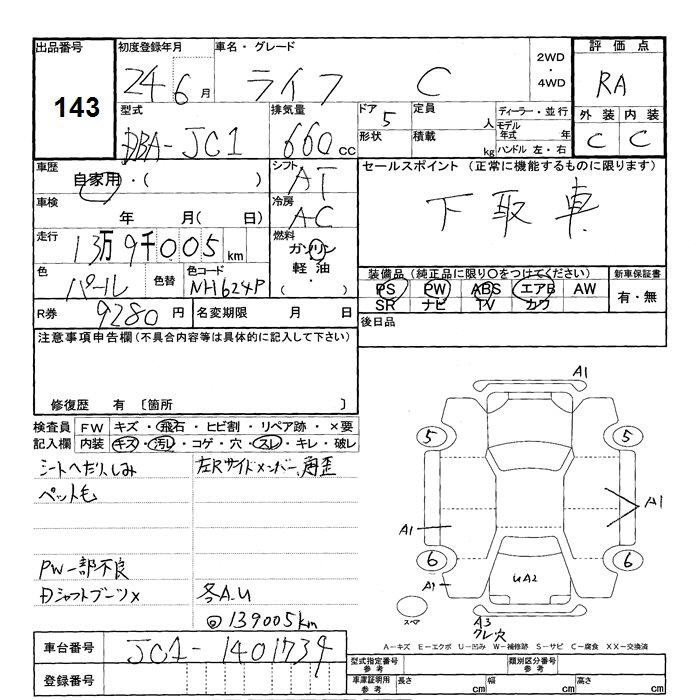 出品番号
143
初度登録年月
24 6 月
車名・グレード
ライフ C
2WD
・
4WD
評価点
RA
外装 内装
C C
型式
DBA-JC1
排気量
660 cc
ドア 5
定員 人
形状
積載 kg
ディーラー・並行
モデル年式 年
ハンドル 左・右
車歴
自家用・( )
シフト
AT
車検
年 月( 日)
冷房
AC
走行
13万9千005 km
燃料
ガソリン
軽油
( ・ )
色
パール
色替
色コード
NH624P
R券
9280 円
名変期限 月 日
セールスポイント (正常に機能するものに限ります)
下取車
装備品(純正品に限り○をつけてください)
PS PW ABS エアB AW
SR ナビ TV カワ
新車保証書
有・無
後日品
注意事項申告欄(不具合内容等は具体的に記入して下さい)
修復歴 有 〔箇所 〕
検査員記入欄
FW キズ・飛石・ヒビ割・リペア跡・×要
内装 キズ・汚レ・コゲ・穴・スレ・キレ・破レ
シートヘたり,しみ
ペット毛
PW一部不良
Dシャフトブーツ×
左Rサイドメンバー,角歪
各A.U
139005km
A1
5 5
A1
A1
6 6
A1
UA2
スペア
A3
クレ穴
A-キズ E-エクボ U-凹み W-補修跡 S-サビ C-腐食 XX-交換済
車台番号
JC1-1401739
登録番号
型式指定番号
参考
類別区分番号
参考
車庫証明用
参考
長さ cm
幅 cm
高さ cm